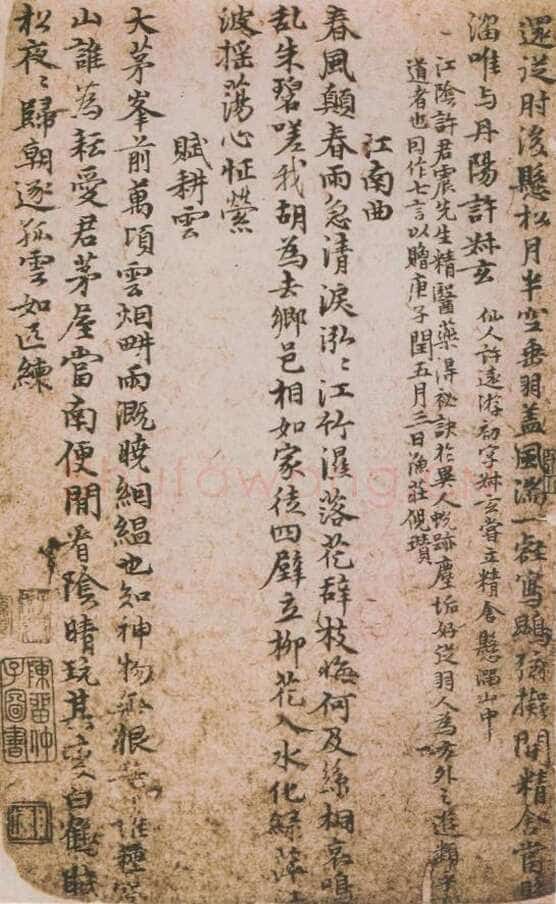 還從肘後懸松月半空垂羽蓋風滿一壑寫鵾弦擬開精舍當
溜唯与丹陽許叔玄
仙人許遠游初字叔玄嘗立精舍懸溜山中
江陰許君震先生精醫藥得祕訣於異人蛻跡塵垢好從羽人為方外之遊類
道者也因作七言以贈庚子閏五月三日漁莊倪瓚
江南曲
春風顛春雨急清淚泓泓江竹濕落花辭枝悔何及絲桐哀鳴
亂朱碧嗟我胡為去鄉邑相如家徒四壁立柳花入水化綠萍
波搖蕩心怔營
賦耕雲
大茅峯前萬頃雲烟畊雨溉曉絪縕也知神物無根蔕誰種
山誰為耘愛君茅屋當南便閒看陰晴玩其變白鶴
松夜夜歸朝逐孤雲如匹練
陳晉仲
子圖書